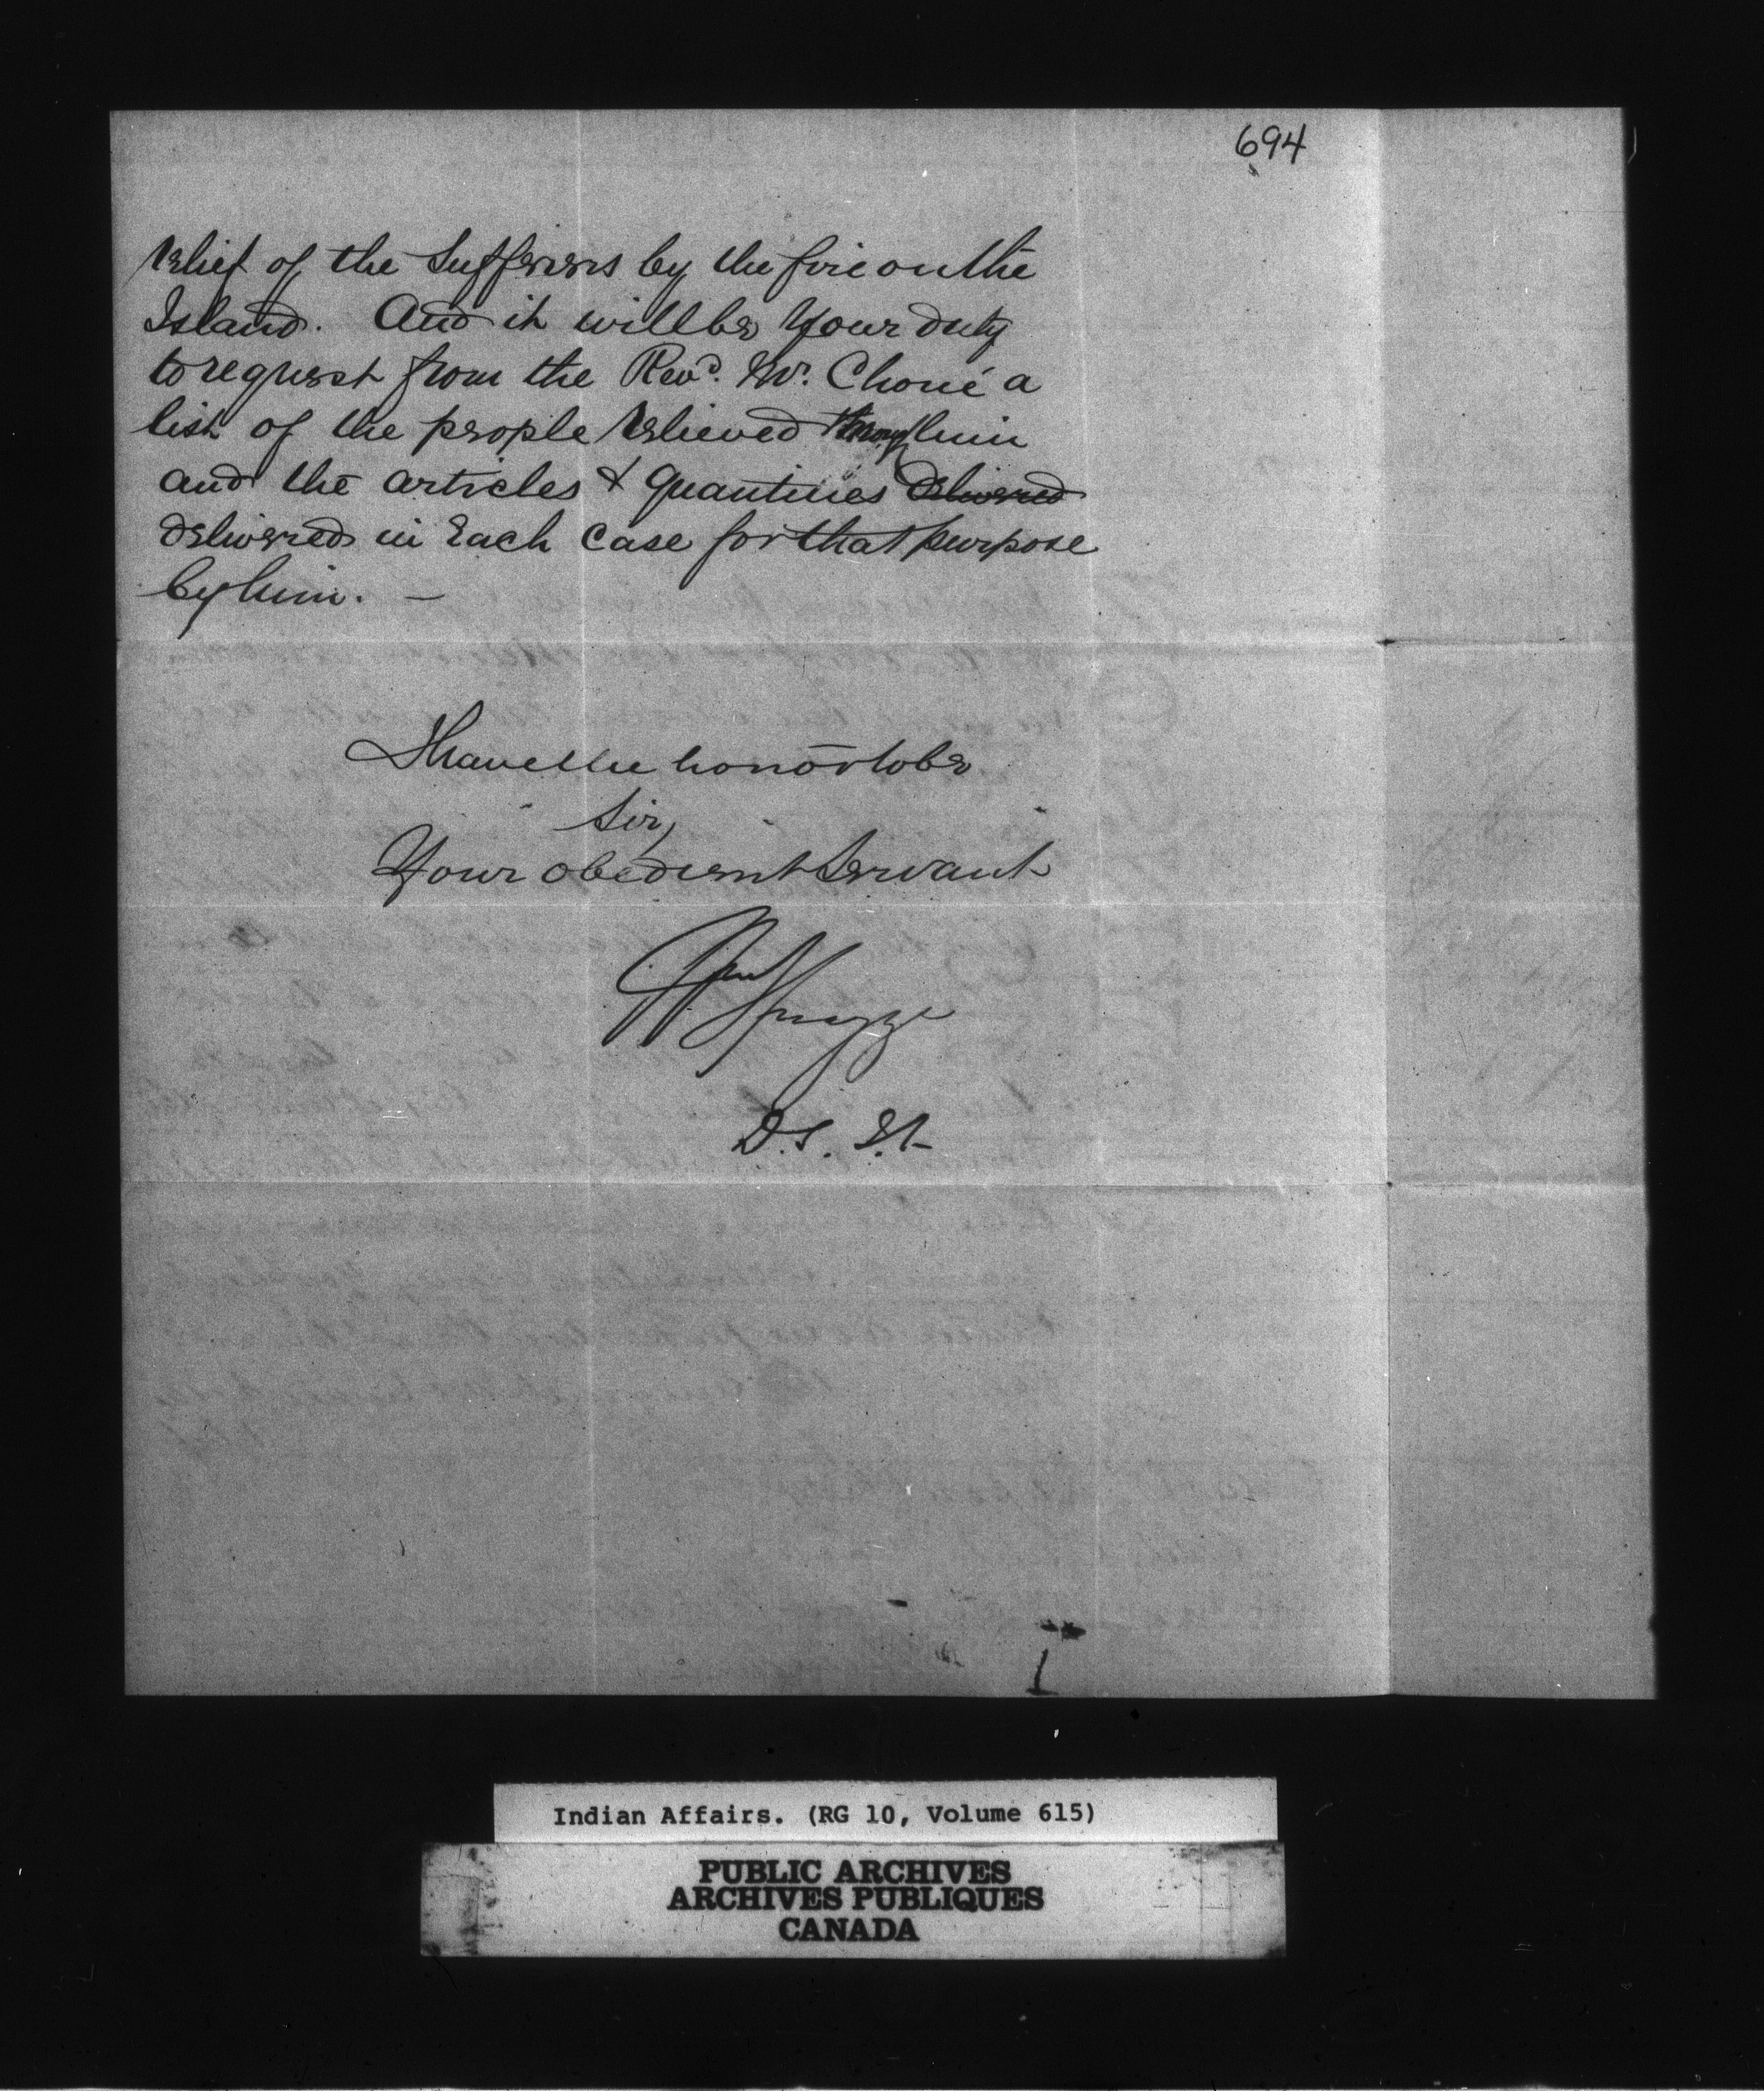 694
relief of the Sufferers by the fire on the
Island. And it will be your duty
to request from the Revd. Mr. Choné a
list of the people relieved through him
and the articles & quantities delivered
delivered in Each case for that purpose
by him. —
I have the honor to be
Sir,
Your obedient Servant
Spragge
D.S. I.A
Indian Affairs. (RG 10, Volume 615)
PUBLIC ARCHIVES
ARCHIVES PUBLIQUES
CANADA